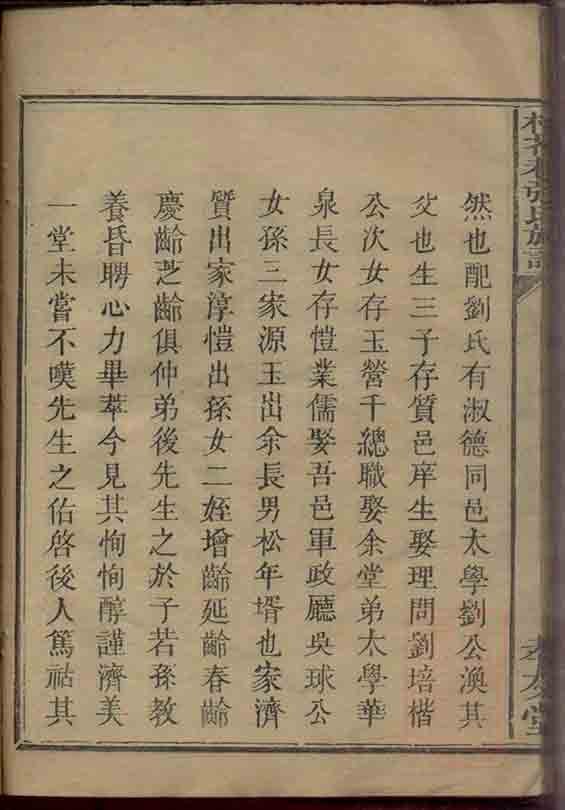 然也配劉氏有淑德同邑太學劉公渙其
父也生三子存質邑庠生娶理問劉培楷
公次女存玉營千總職娶余堂弟太學華
泉長女存愷業儒娶吾邑軍政廳吳球公
女孫三家源玉出余長男松年壻也家濟
質出家淳愷出孫女二姪增齡延齡春齡
慶齡芝齡俱仲弟後先生之於子若孫教
養昏聘心力畢萃今見其恂恂醇謹濟美
一堂未嘗不嘆先生之佑啓後人篤祜其